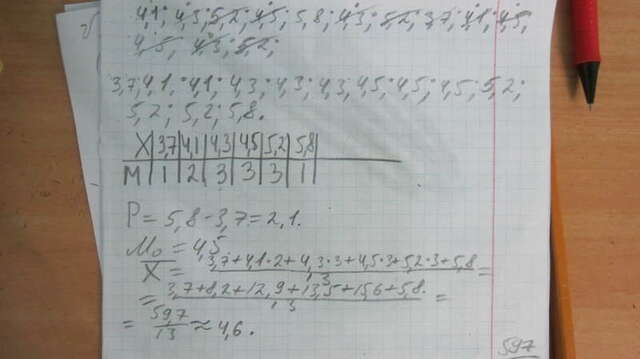 4,1; 4,5; 5,2; 4,5; 5,8; 4,3; 5,2; 3,7; 4,1; 4,5;
4,3; 5,2;
3,7; 4,1; 4,1; 4,3; 4,3; 4,3; 4,5; 4,5; 4,5; 5,2;
5,2; 5,2; 5,8.
X | 3,7 | 4,1 | 4,3 | 4,5 | 5,2 | 5,8
M | 1 | 2 | 3 | 3 | 3 | 1
P = 5,8 - 3,7 = 2,1.
Mo = 4,5
X = 3,7+4,1·2+4,3·3+4,5·3+5,2·3+5,8 / 13 =
= 3,7+8,2+12,9+13,5+15,6+5,8 / 13 =
= 59,7 / 13 ≈ 4,6.
597